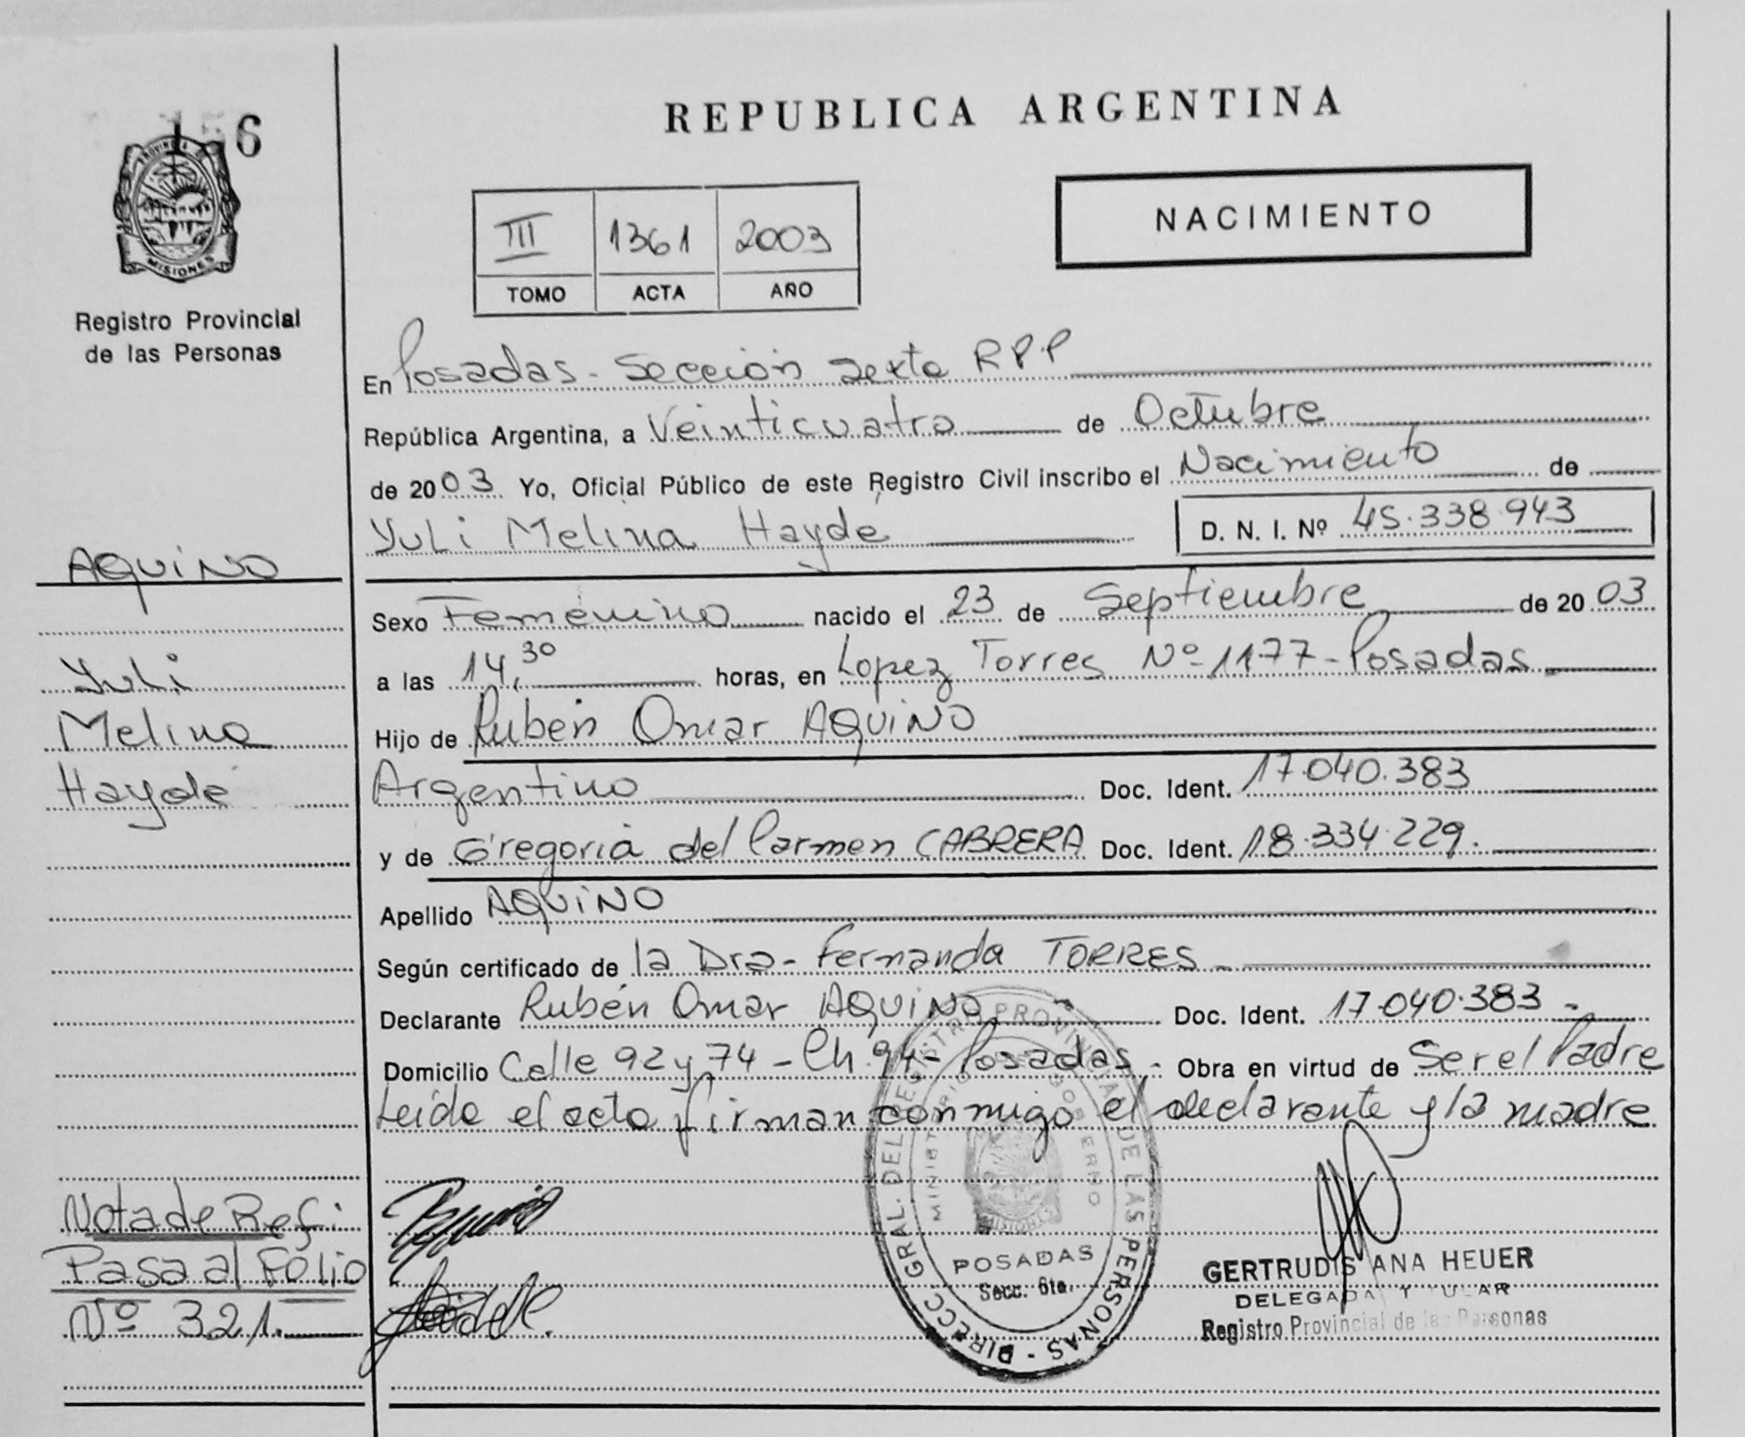 156
PROVINCIA DE
MISIONES
Registro Provincial
de las Personas
REPUBLICA ARGENTINA
NACIMIENTO
III 1361 2003
TOMO ACTA AÑO
En Posadas - Sección Sexta RPP
República Argentina, a Veinticuatro de Octubre
de 2003 Yo, Oficial Público de este Registro Civil inscribo el Nacimiento de
Yuli Melina Haydé D. N. I. Nº 45.338.943
AQUINO
Yuli
Melina
Haydé
Sexo Femenino nacido el 23 de Septiembre de 2003
a las 14,30 horas, en Lopez Torres Nº 1177 - Posadas
Hijo de Rubén Omar AQUINO
Argentino Doc. Ident. 17.040.383
y de Gregoria del Carmen CABRERA Doc. Ident. 18.334.229.
Apellido AQUINO
Según certificado de la Dra - Fernanda TORRES
Declarante Rubén Omar AQUINO Doc. Ident. 17.040.383 -
Domicilio Calle 92 y 74 - Ch. 94 - Posadas - Obra en virtud de Ser el Padre
Leída el acta firman conmigo el declarante y la madre
Nota de Ref:
Pasa al Folio
Nº 321.
DIRECC. GRAL. DEL REGISTRO PROVINCIAL DE LAS PERSONAS -
MINISTERIO DE GOBIERNO
MISIONES
POSADAS
Secc. 6ta.
GERTRUDIS ANA HEUER
DELEGADA TITULAR
Registro Provincial de las Personas